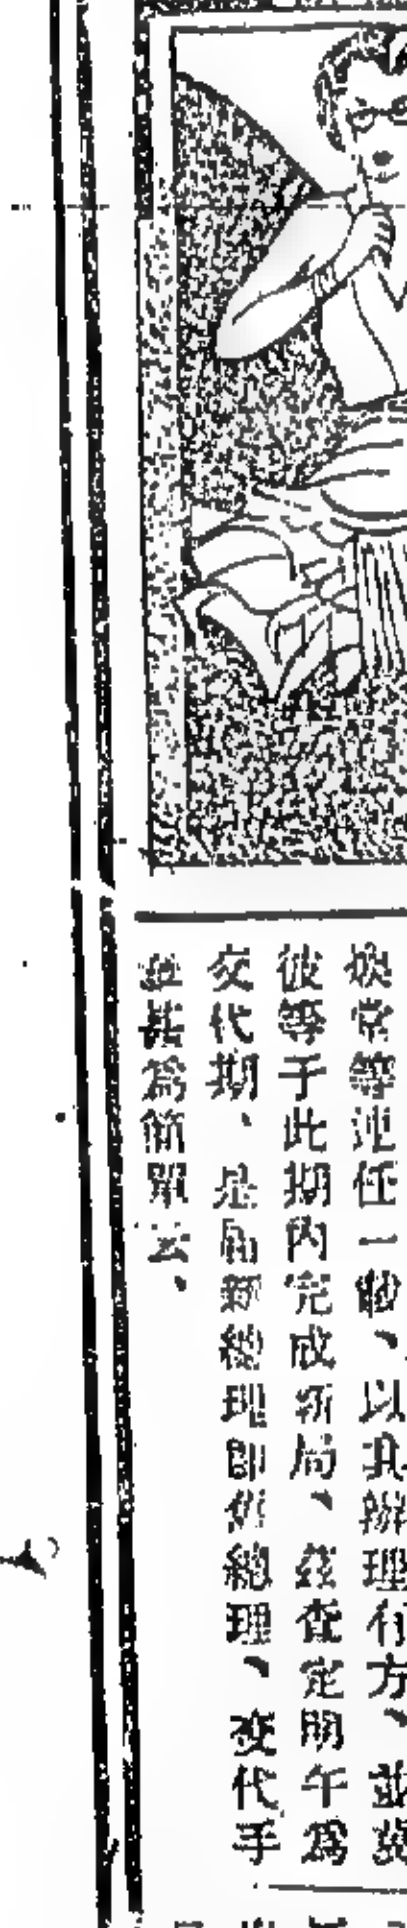 煥常等連任一齡、以其辦理有方、並冀
彼等于此期內完成新局、茲查定明午爲
交代期、是屆新總理即舊總理、交代手
並甚爲簡單云、